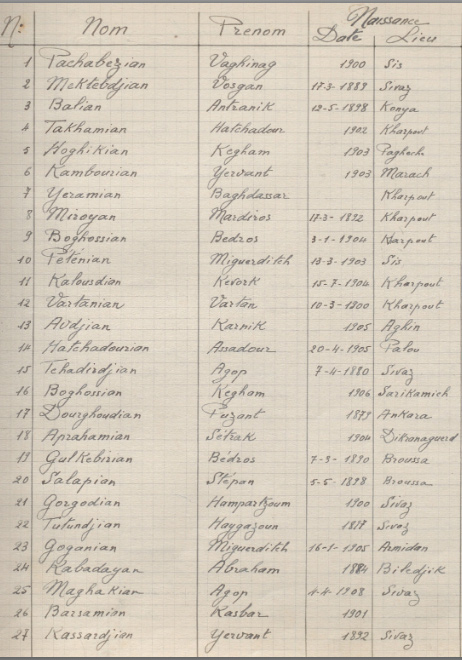 N: Nom Prenom Naissance
Date Lieu
1 Pachabezian Vaghinag 1900 Sis
2 Mektebdjian Vosgan 17-3-1889 Sivaz
3 Balian Antranik 12-5-1898 Konya
4 Takhamian Hatchadour 1902 Kharpout
5 Hoghikian Kegham 1903
6 Kambourian Yervant 1903 Marach
7 Yeramian Baghdassar Kharpout
8 Miroyan Mardiros 17-3-1892 Kharpout
9 Boghossian Bedros 3-1-1904 Karpout
10 Petenian Miguerditch 13-3-1903 Sis
11 Kalousdian Kevork 15-7-1904 Kharpout
12 Vartanian Vartan 10-3-1900 Kharpout
13 Avdjian Karnik 1905 Aghin
14 Hatchadourian Assadour 20-4-1905 Palou
15 Tchadirdjian Agop 7-4-1880 Sivaz
16 Boghossian Kegham 1906 Sarikamich
17 Dourghoudian Puzant 1879 Ankara
18 Aprahamian Setrak 1904 Dikranaguerd
19 Gulkebirian Bedros 7-3-1890 Broussa
20 Salapian Stepan 5-5-1898 Broussa
21 Gorgodian Hampartzoum 1900 Sivaz
22 Tutundjian Haygazoun Sivaz
23 Goganian Miguerditch 16-1-1905 Armidan
24 Kabadayan Abraham 1884 Biledjik
25 Maghakian Agop 1-4-1908 Sivaz
26 Barsamian Kasbar 1901
27 Kassardjian Yervant 1892 Sivaz